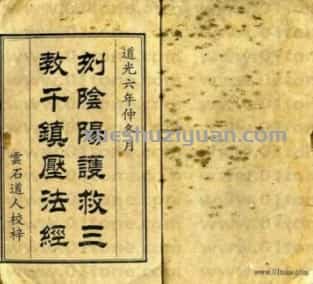 道光六年仲冬月
刻陰陽護救三
教千鎮壓法經
雲石道人校梓
xueshuziyuan.com